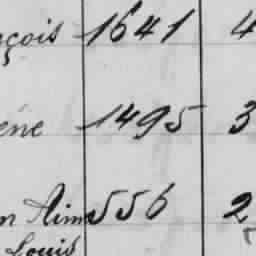 çois 1641 4
ène 1495 3
n Aimé 556 2
Louis